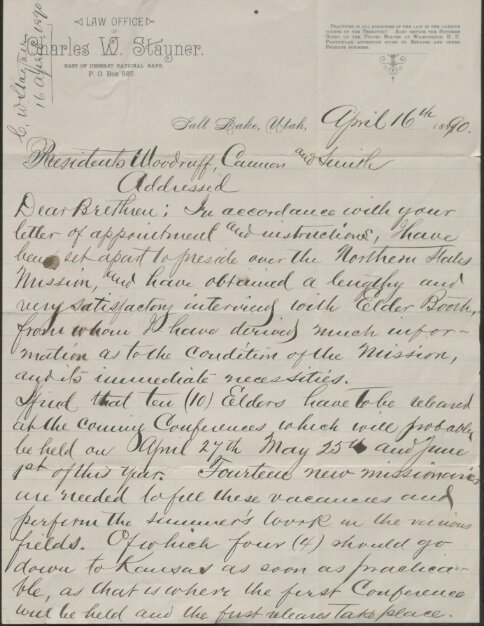 C. W. Stayner
16 April, 1890
LAW OFFICE
OF
Charles W. Stayner.
EAST OF DESERET NATIONAL BANK
P. O. Box 587.
PRACTICES IN ALL BRANCHES OF THE LAW IN THE VARIOUS
COURTS OF THE TERRITORY. ALSO BEFORE THE SUPREME
COURT OF THE UNITED STATES AT WASHINGTON D. C.
PARTICULAR ATTENTION GIVEN TO ESTATES AND OTHER
PROBATE BUSINESS.
Salt Lake, Utah, April 16th 1890.
Presidents Woodruff, Cannon and Smith
Addressed
Dear Brethren; In accordance with your
letter of appointment and instructions, I have
been set apart to preside over the Northern States
Mission, and have obtained a lengthy and
very satisfactory interview with Elder Booth,
from whom I have derived much infor-
mation as to the condition of the Mission,
and its immediate necessities.
I find that ten (10) Elders have to be released
at the coming Conferences which will probably
be held on April 27th May 25th and June
1st of this year. Fourteen new missionaries
are needed to fill these vacancies and
perform the summer's work in the various
fields. Of which four (4) should go
down to Kansas as soon as practica-
ble, as that is where the first Conference
will be held and the first releases take place.